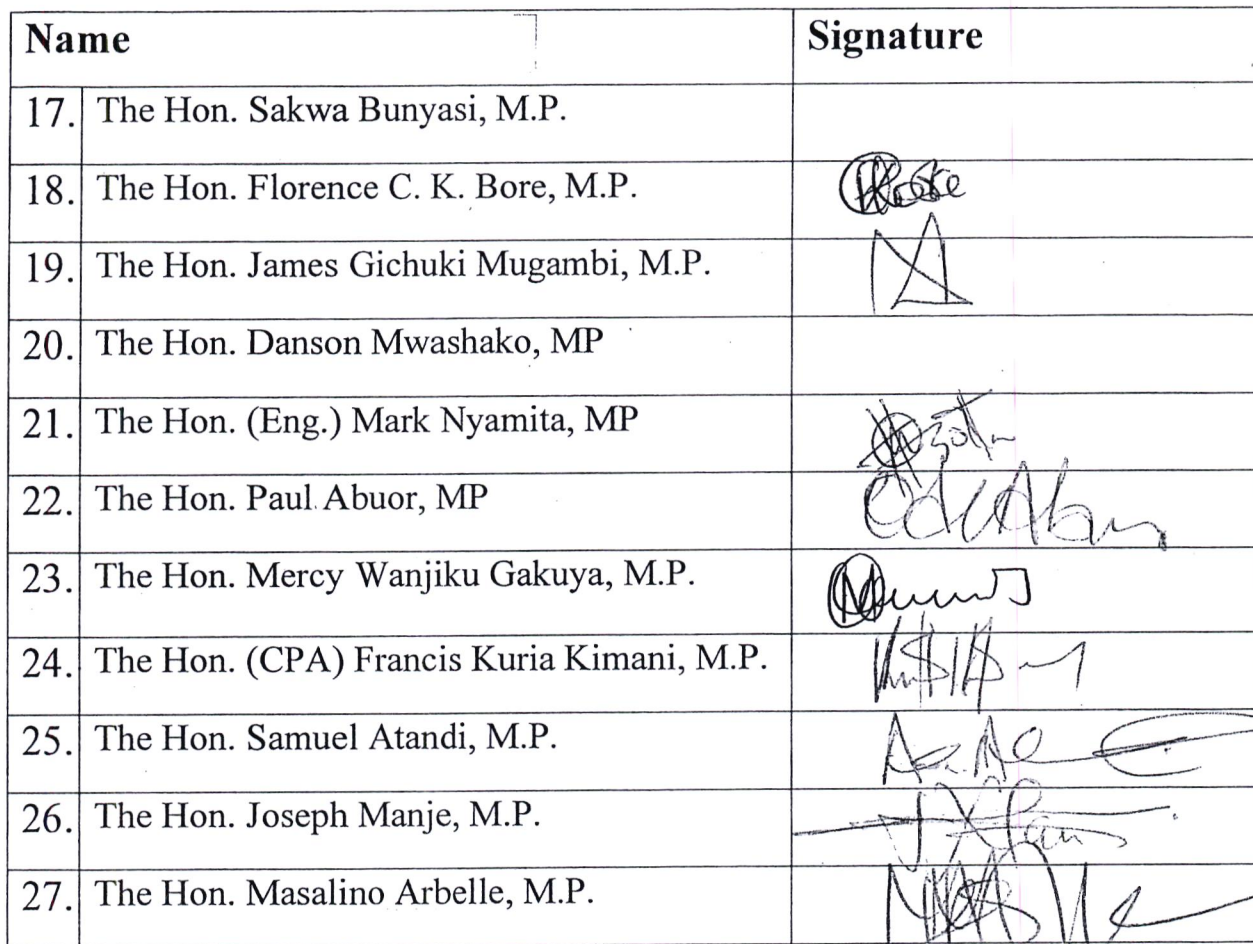 Name Signature
17. The Hon. Sakwa Bunyasi, M.P.
18. The Hon. Florence C. K. Bore, M.P.
19. The Hon. James Gichuki Mugambi, M.P.
20. The Hon. Danson Mwashako, MP
21. The Hon. (Eng.) Mark Nyamita, MP
22. The Hon. Paul Abuor, MP
23. The Hon. Mercy Wanjiku Gakuya, M.P.
24. The Hon. (CPA) Francis Kuria Kimani, M.P.
25. The Hon. Samuel Atandi, M.P.
26. The Hon. Joseph Manje, M.P.
27. The Hon. Masalino Arbelle, M.P.